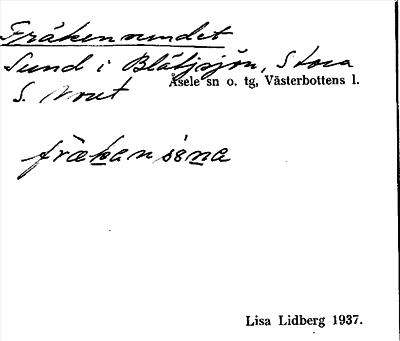 Fräkensundet
Sund i Blåtjsjön, Stora
Åsele sn o. tg, Västerbottens l.
S. 
fräkansena
Lisa Lidberg 1937.